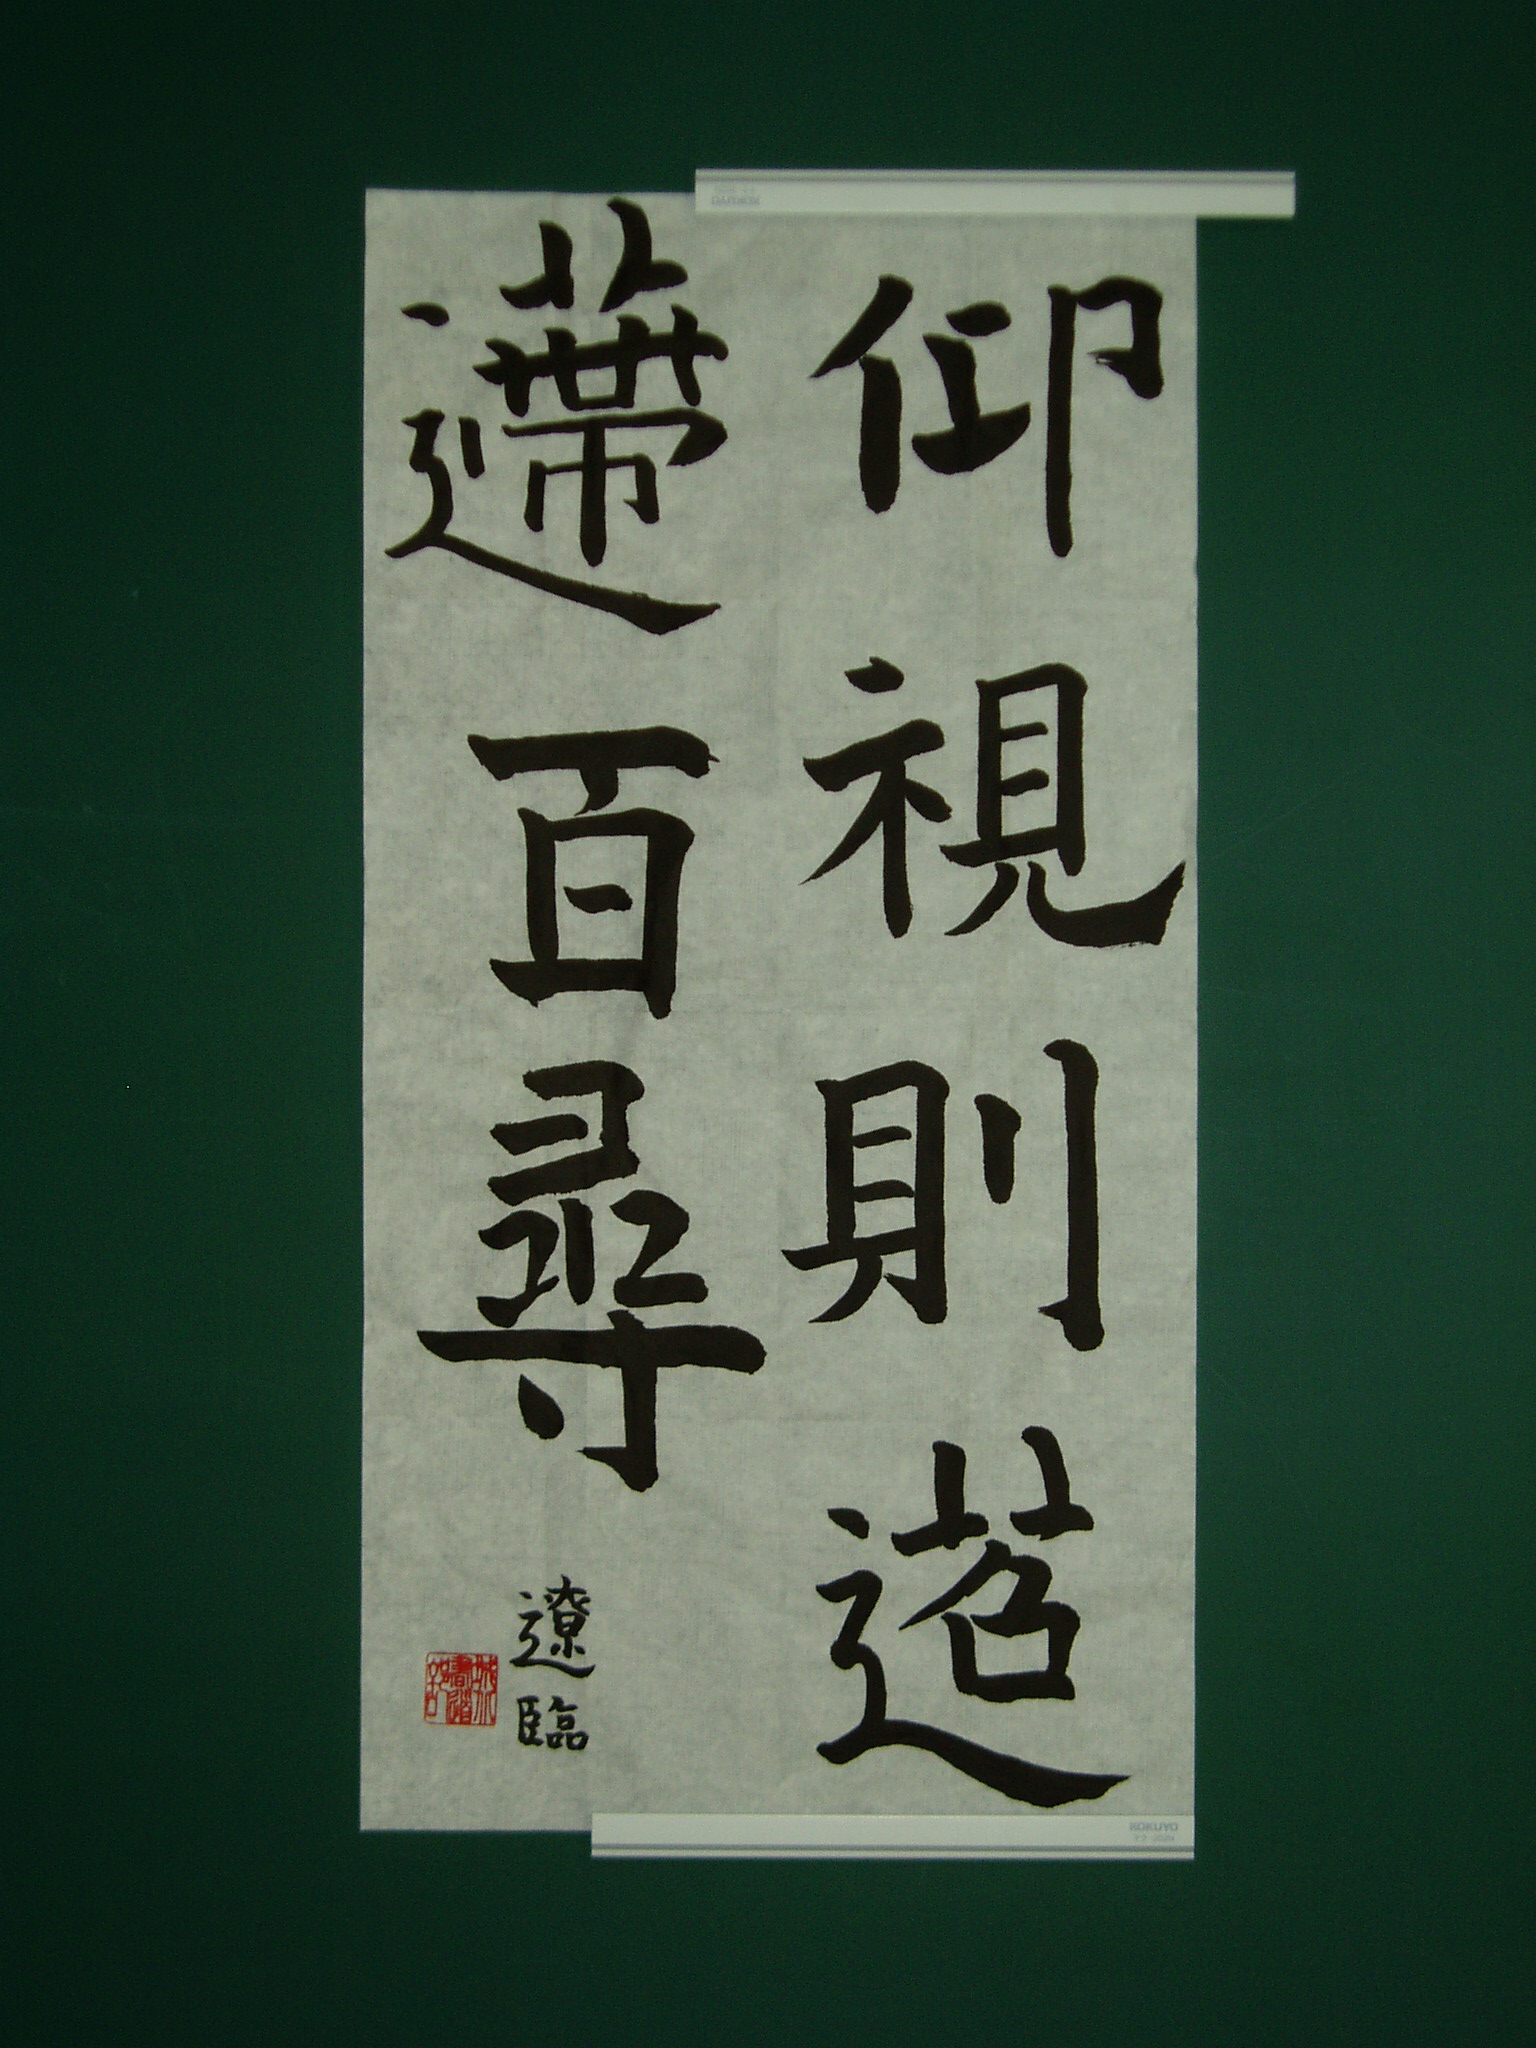 仰視則迢
遰百尋
遼臨
KOKUYO
KOKUYO